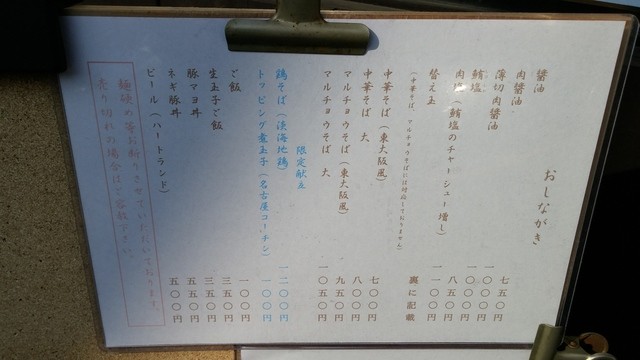 おしながき
醤油 七五〇円
肉醤油 一〇〇〇円
薄切肉醤油 一〇〇〇円
鮪塩 八五〇円
肉塩(鮪塩のチャーシュー増し) 一一〇〇円
替え玉 裏に記載
(中華そば、マルチョウそばには対応しておりません)
中華そば(東大阪風) 七〇〇円
中華そば 大 八〇〇円
マルチョウそば(東大阪風) 九五〇円
マルチョウそば 大 一〇五〇円
限定献立
鶏そば(淡海地鶏) 一二〇〇円
トッピング煮玉子(名古屋コーチン) 一〇〇円
ご飯 一〇〇円
生玉子ご飯 三五〇円
豚マヨ丼 三五〇円
ネギ豚丼 五〇〇円
ビール(ハートランド) 五〇〇円
麺硬の等お断りさせていただいております。
売り切れの場合はご容赦下さい。